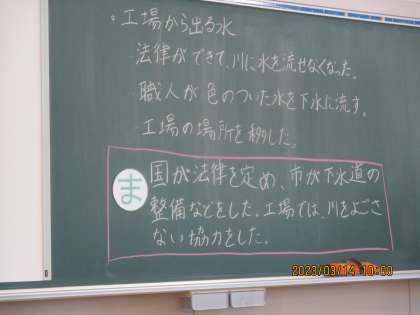 ・工場から出る水
・法律ができて、川に水を流せなくなった。
・職人が色のついた水を下水に流す。
・工場の場所を移した。
ま 国が法律を定め、市が下水道の
整備などをした。工場では、川をよごさ
ない協力をした。
2023/03/14 10:50